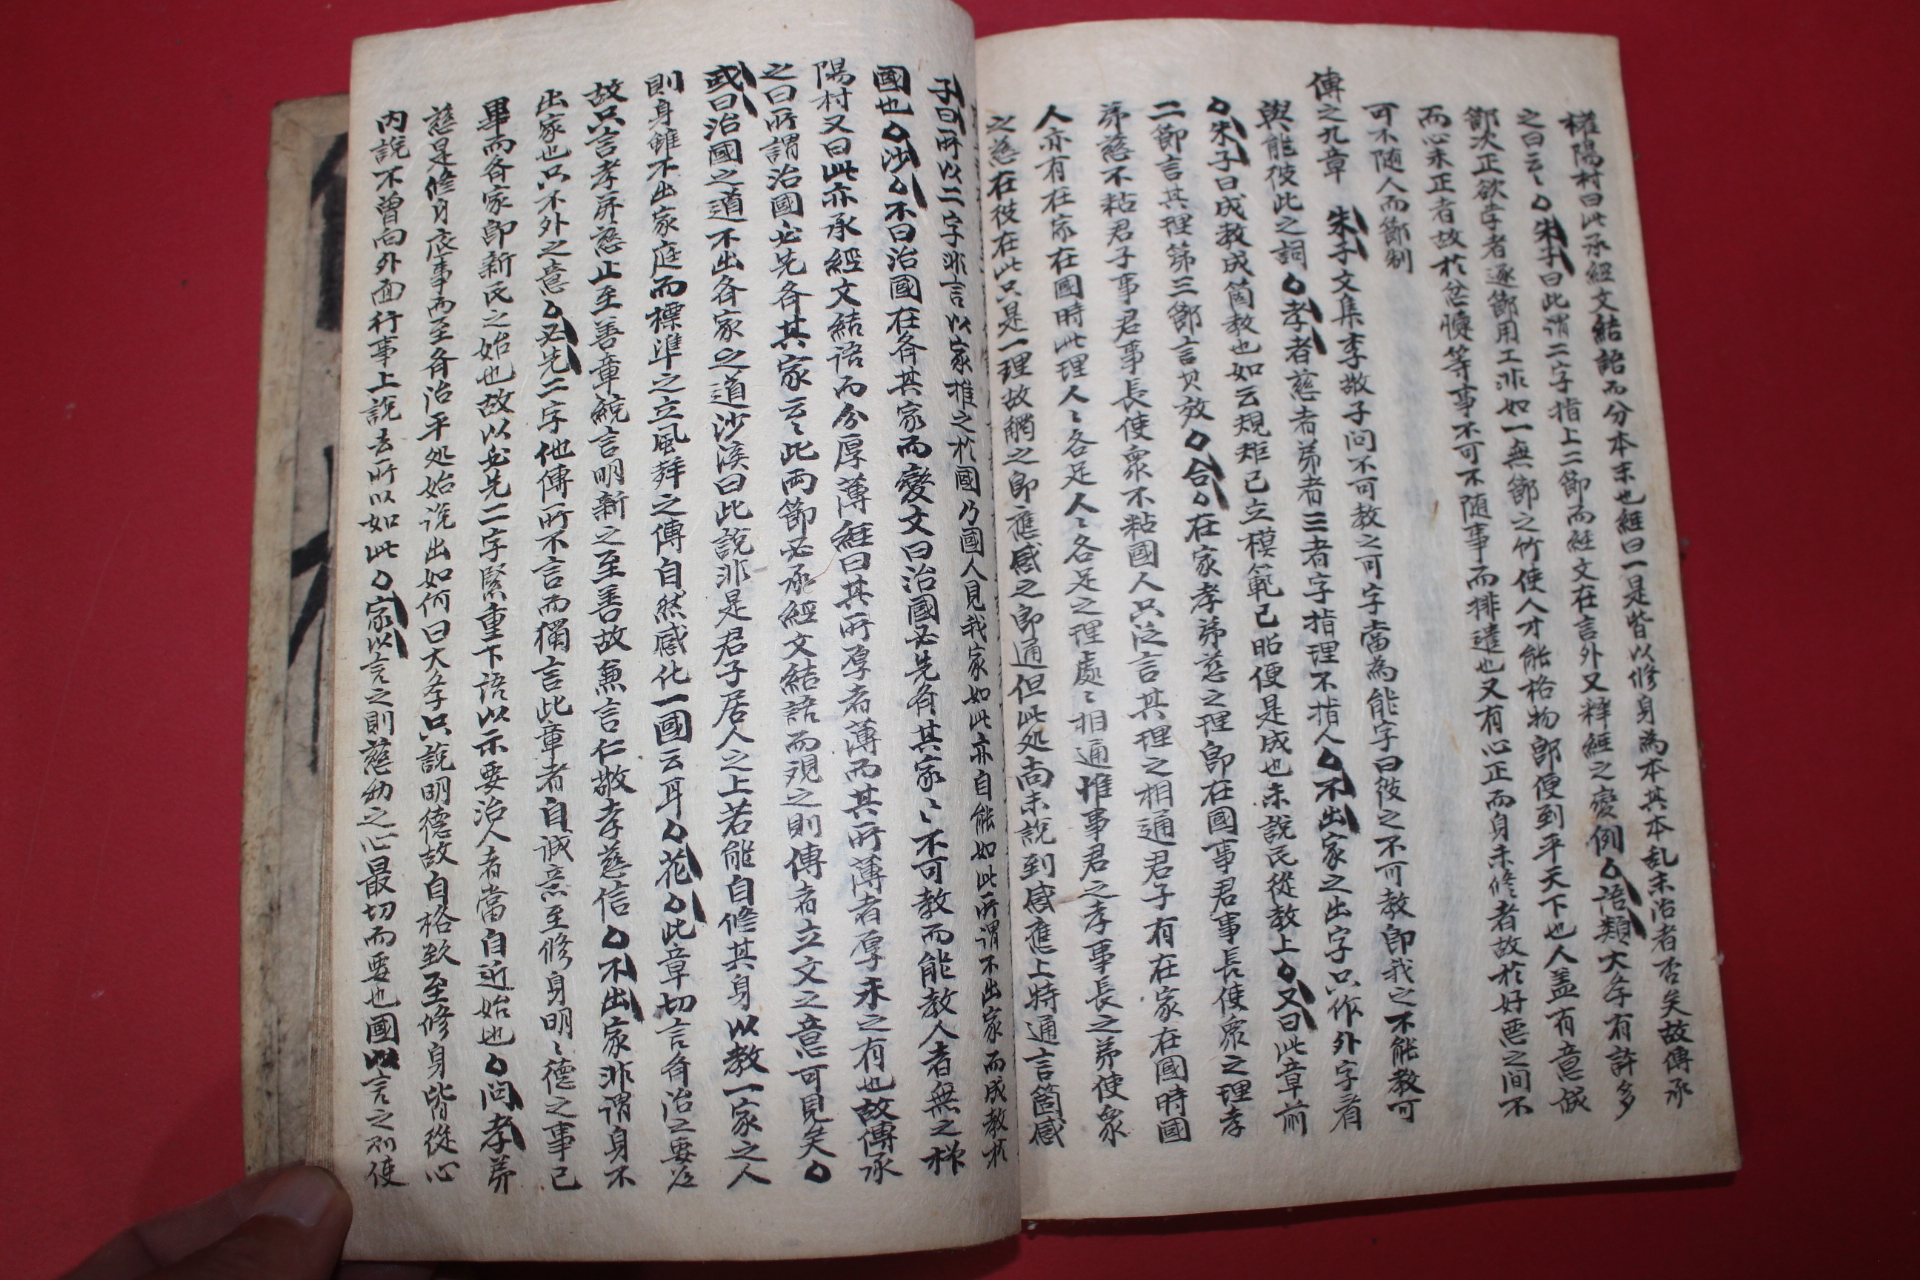 權陽村曰此承經文結語而分本末也經曰一是皆以修身為本其本乱末治者否矣故傳承
之曰云〻朱子曰此謂二字指上二節而經文在言外又釋經之變例語類大学有許多
節次正欲学者逐節用工非如一無節之竹使人才能格物即便到平天下也人盖有意誠
而心未正者故於忿懥等事不可不随事而排遣也又有心正而身未修者故於好惡之间不
可不随人而節制
傳之九章 朱子文集李敬子问不可教之可字當為能字曰彼之不可教即我之不能教可
與能彼此之詞孝者慈者弟者三者字指理不指人不出家之出字只作外字看
朱子曰成教成箇教也如云規矩已立模範已昭便是成也未說民從教上又曰此章前
二節言其理第三節言其效合在家孝弟慈之理即在國事君事長使衆之理孝
弟慈不粘君子事君事長使衆不粘國人只泛言其理之相通君子有在家在國時國
人亦有在家在國時此理人〻各足人〻各足之理處〻相通惟事君之孝事長之弟使衆
之慈在彼在此只是一理故觸之即應感之即通但此处尚未說到感應上特通言箇感
子曰所以二字非言以家推之於國乃國人見我家如此亦自能如此所谓不出家而成教於
國也沙不曰治國在齐其家而變文曰治國必先齐其家〻不可教而能教人者無之様
陽村又曰此亦承經文結語而分厚薄經曰其所厚者薄而其所薄者厚未之有也故傳承
之曰所謂治國必先各其家云〻此両節必承經文結語而現之則傳者立文之意可見矣
或曰治國之道不出各家之道沙溪曰此說非是君子居人之上若能自修其身以教一家之人
則身雖不出家庭而標準之立風聲之傳自然感化一國云耳花此章切言齐治之要
故只言孝弟慈止至善章統言明新之至善故兼言仁敬孝慈信不出家非谓身不
出家也只不外之意必先二字他傳所不言而獨言此章者自誠意至修身明〻德之事已
畢而各家即新民之始也故以必先二字緊重下語以示要治人者當自近始也问孝弟
慈是修身底事而至齐治平处始说出如何曰大学只說明德故自格致至修身皆從心
内說不曾向外面行事上說去所以如此家以言之則慈幼之心最切而要也國以言之则使